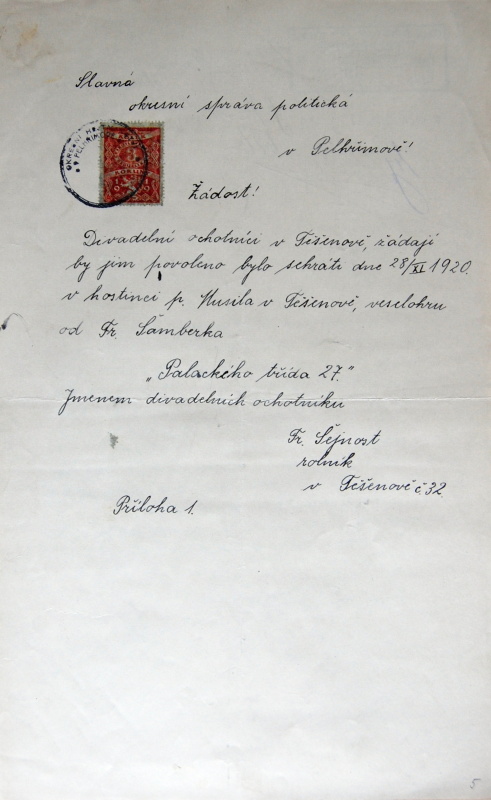 Slavná
okresní správa politická
v Pelhřimově!
Žádost!
Divadelní ochotníci v Těšenově, žádají
by jim povoleno bylo sehráti dne 28/XI 1920.
v hostinci p. Musila v Těšenově, veselohru
od Fr. Šamberka
„Palackého třída 27."
Jmenem divadelních ochotníků
Fr. Šejnost
rolník
v Těšenově č 32
Příloha 1.
5